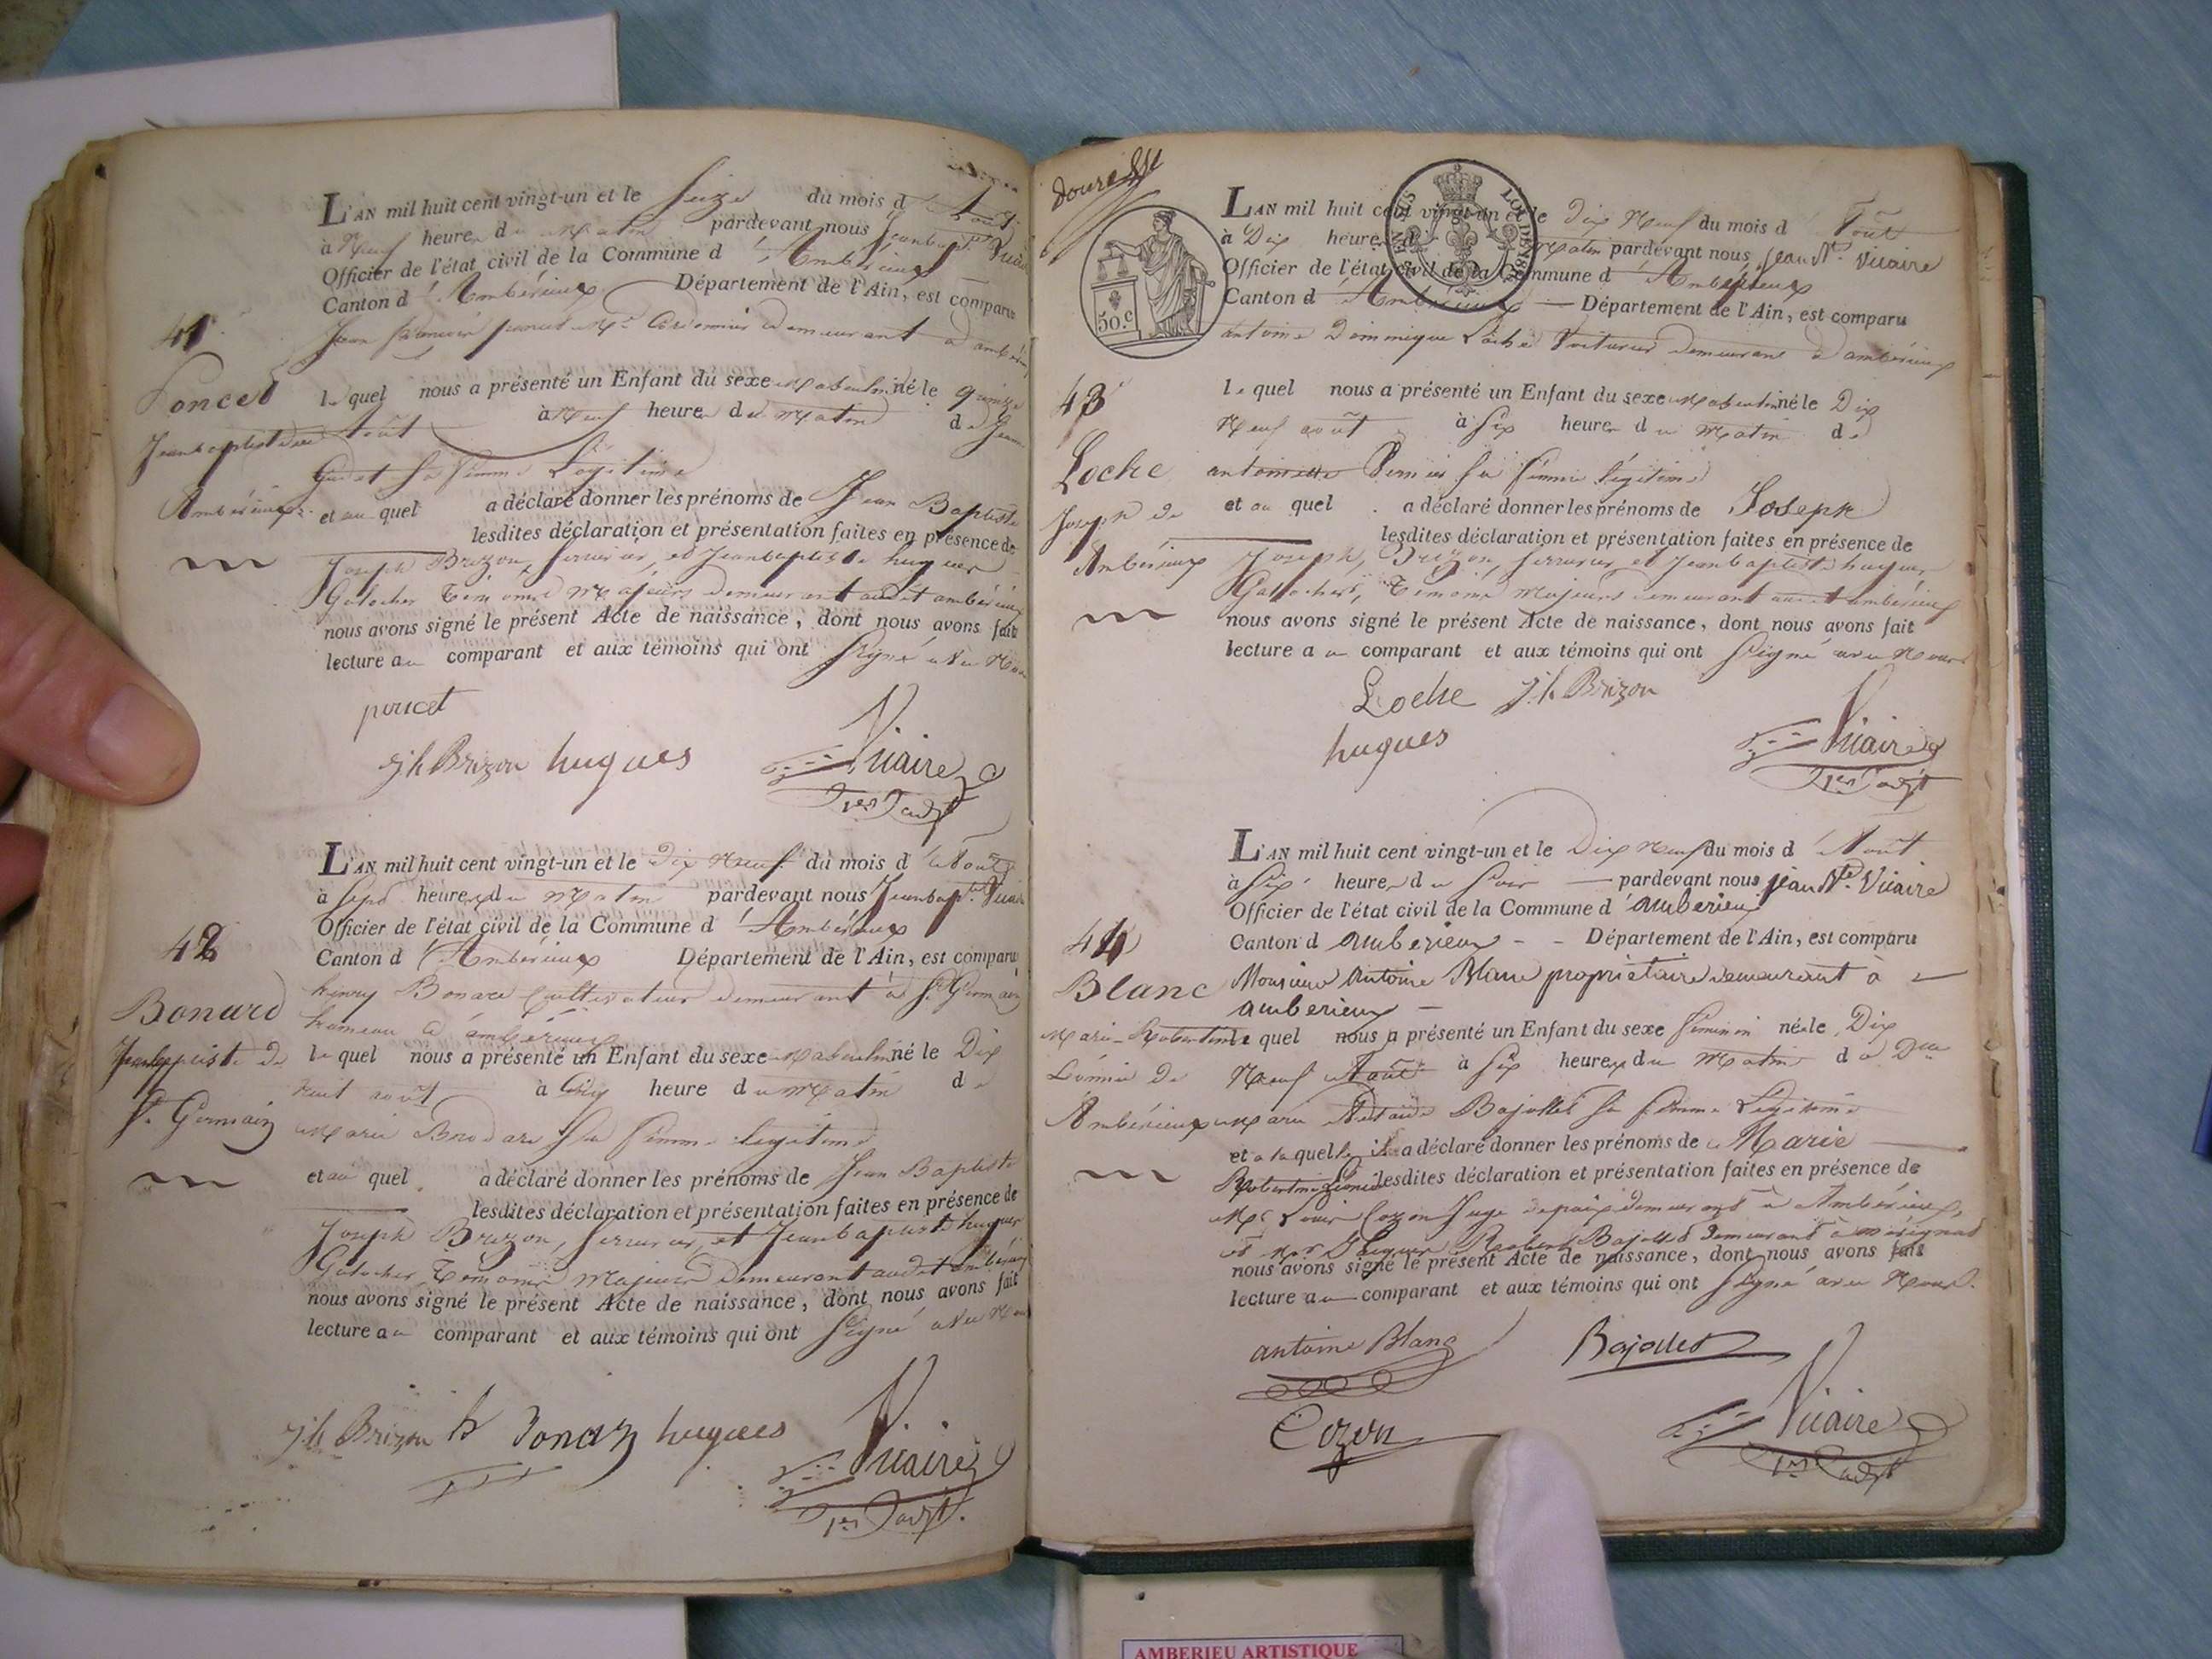 L'AN mil huit cent vingt-un et le Seize du mois d'Août
à Neuf heures du Matin pardevant nous Jeanbapte Vicaire
Officier de l'état civil de la Commune d'Ambérieux
Canton d'Ambérieux Département de l'Ain, est comparu
Jean poncet Md Cordonnier demeurant à ambérieux
41
Poncet
Jeanbaptiste de
Ambérieux
lequel nous a présenté un Enfant du sexe Masculin né le quinze
Août à Neuf heures du Matin de
sa femme Légitime
et au quel a déclaré donner les prénoms de Jean Baptiste
lesdites déclaration et présentation faites en présence de
Joseph Brizon, Serrurier, et Jeanbaptiste hugues
Galocher Témoins Majeurs demeurant audit ambérieux
nous avons signé le présent Acte de naissance, dont nous avons fait
lecture au comparant et aux témoins qui ont Signé avec Nous
poncet
Jh Brizon hugues Vicaire
1er adjt
L'AN mil huit cent vingt-un et le Dix Neuf du mois d'Août
à Sept heures du Matin pardevant nous Jeanbapte Vicaire
Officier de l'état civil de la Commune d'Ambérieux
Canton d'Ambérieux Département de l'Ain, est comparu
henry Bonard Cultivateur demeurant à St Germain
hameau d'ambérieux
42
Bonard
Jeanbaptiste de
St Germain
lequel nous a présenté un Enfant du sexe Masculin né le Dix
huit août à heure du Matin de
Marie Brodard Sa femme légitime
et au quel a déclaré donner les prénoms de Jean Baptiste
lesdites déclaration et présentation faites en présence de
Joseph Brizon, Serrurier, et Jeanbaptiste hugues
Galocher, Témoins Majeurs Demeurant audit ambérieux
nous avons signé le présent Acte de naissance, dont nous avons fait
lecture au comparant et aux témoins qui ont Signé avec Nous
Jh Brizon h Bonard hugues Vicaire
1er adjt.
50.c
LAN mil huit cent vingt-un et le Dix Neuf du mois d'Août
à Dix heures du Matin pardevant nous jean Bte Vicaire
Officier de l'état civil de la Commune d'Ambérieux
Canton d'Ambérieux Département de l'Ain, est comparu
antoine Dominique Loche Voiturier demeurant à ambérieux
43
Loche
Joseph de
Ambérieux
lequel nous a présenté un Enfant du sexe Masculin né le Dix
Neuf août à Six heures du Matin de
antoinette Sa femme légitime
et au quel a déclaré donner les prénoms de Joseph
lesdites déclaration et présentation faites en présence de
Joseph Brizon, Serrurier et Jeanbaptiste hugues
Galocher, Témoins Majeurs demeurant audit ambérieux
nous avons signé le présent Acte de naissance, dont nous avons fait
lecture au comparant et aux témoins qui ont Signé avec Nous
Loche Jh Brizon
hugues Vicaire
1er adjt
L'AN mil huit cent vingt-un et le Dix Neuf du mois d'Août
à Six heures du Soir pardevant nous jean Bte Vicaire
Officier de l'état civil de la Commune d'amberieux
Canton d'amberieux Département de l'Ain, est comparu
Monsieur Antoine Blanc propriétaire demeurant à
amberieux
44
Blanc
Marie-Robertine
Léonie de
Ambérieux
lequel nous a présenté un Enfant du sexe feminin née le Dix
Neuf Août à Six heures du Matin de Dme
Marie Bajollet Sa femme Légitime
et a laquelle il a déclaré donner les prénoms de Marie
Robertine Léonie lesdites déclaration et présentation faites en présence de
Mr Louis Cozon Juge depaix demeurant à Ambérieux,
et Mr Robert Bajollet Demeurant à
nous avons signé le présent Acte de naissance, dont nous avons fait
lecture au comparant et aux témoins qui ont Signé avec Nous.
antoine Blanc Bajollet
Cozon Vicaire
1er adjt
AMBERIEU ARTISTIQUE